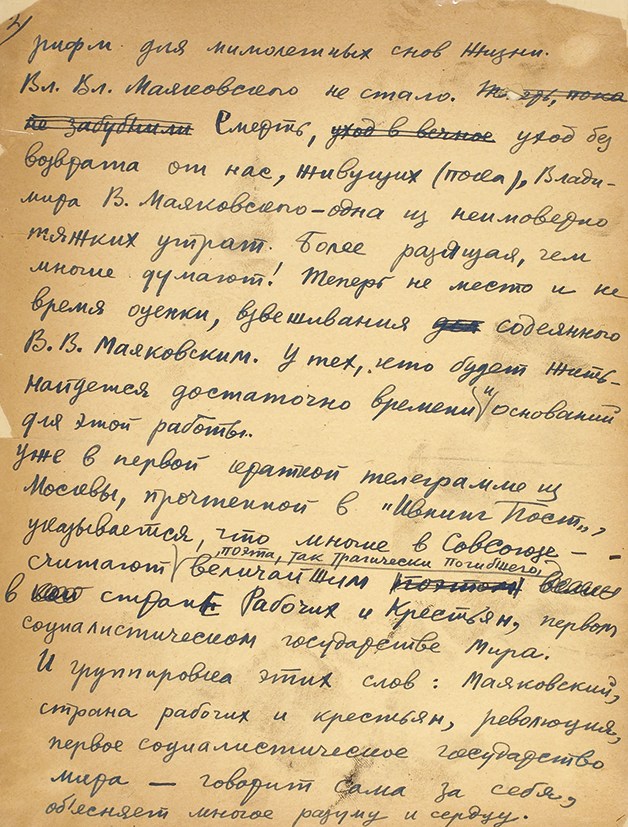 2)
рифм для мимолетных снов жизни.
Вл. Вл. Маяковского не стало. пока
не забубнили Смерть, уход в вечное уход без
возврата от нас, живущих (пока), Влади-
мира В. Маяковского – одна из неимоверно
тяжких утрат. Более разящая, чем
многие думают! Теперь не место и не
время оценки, взвешивания дел содеянного
В. В. Маяковским. У тех, что будет жить –
найдется достаточно времени и оснований
для этой работы.
Уже в первой краткой телеграмме из
Москвы, прочтенной в "Ивнинг Пост",
указывается, что многие в СовСоюзе –
поэта, так трагически погибшего,
считают величайшим поэтом
в стране Рабочих и Крестьян, первом
социалистическом государстве мира.
И группировка этих слов: Маяковский,
страна рабочих и крестьян, революция,
первое социалистическое государство
мира — говорит сама за себя,
об'ясняет многое разуму и сердцу.